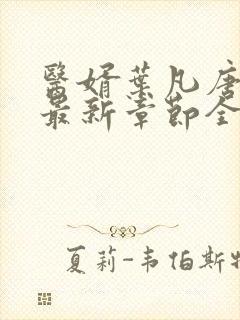 醫婿葉凡唐
最新章節全
夏莉-韦伯斯特